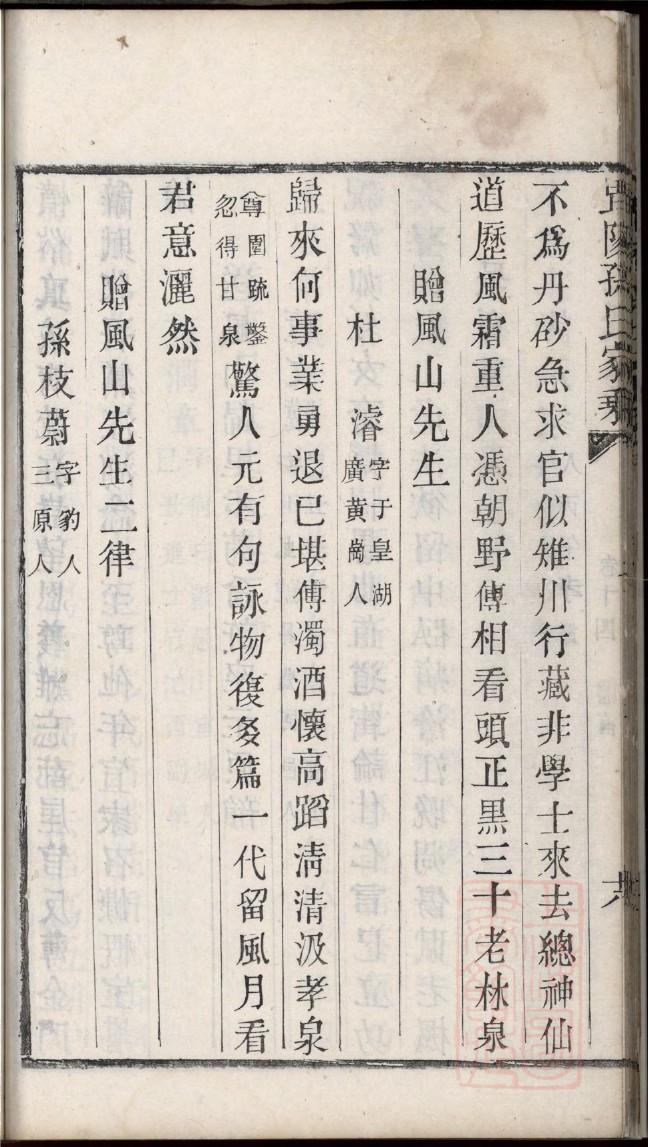 不爲丹砂急求官似雉川行藏非學士來去總神仙
道歷風霜重人憑朝野傳相看頭正黑三十老林泉
贈風山先生
杜濬字于皇湖廣黃岡人
歸來何事業勇退已堪傳濁酒懷高蹈淸清汲孝泉
尊圃疏鑿忽得甘泉驚人元有句詠物復多篇一代留風月看
君意灑然
贈風山先生二律
孫枝蔚字豹人三原人
孫氏家乘
卷十四
六